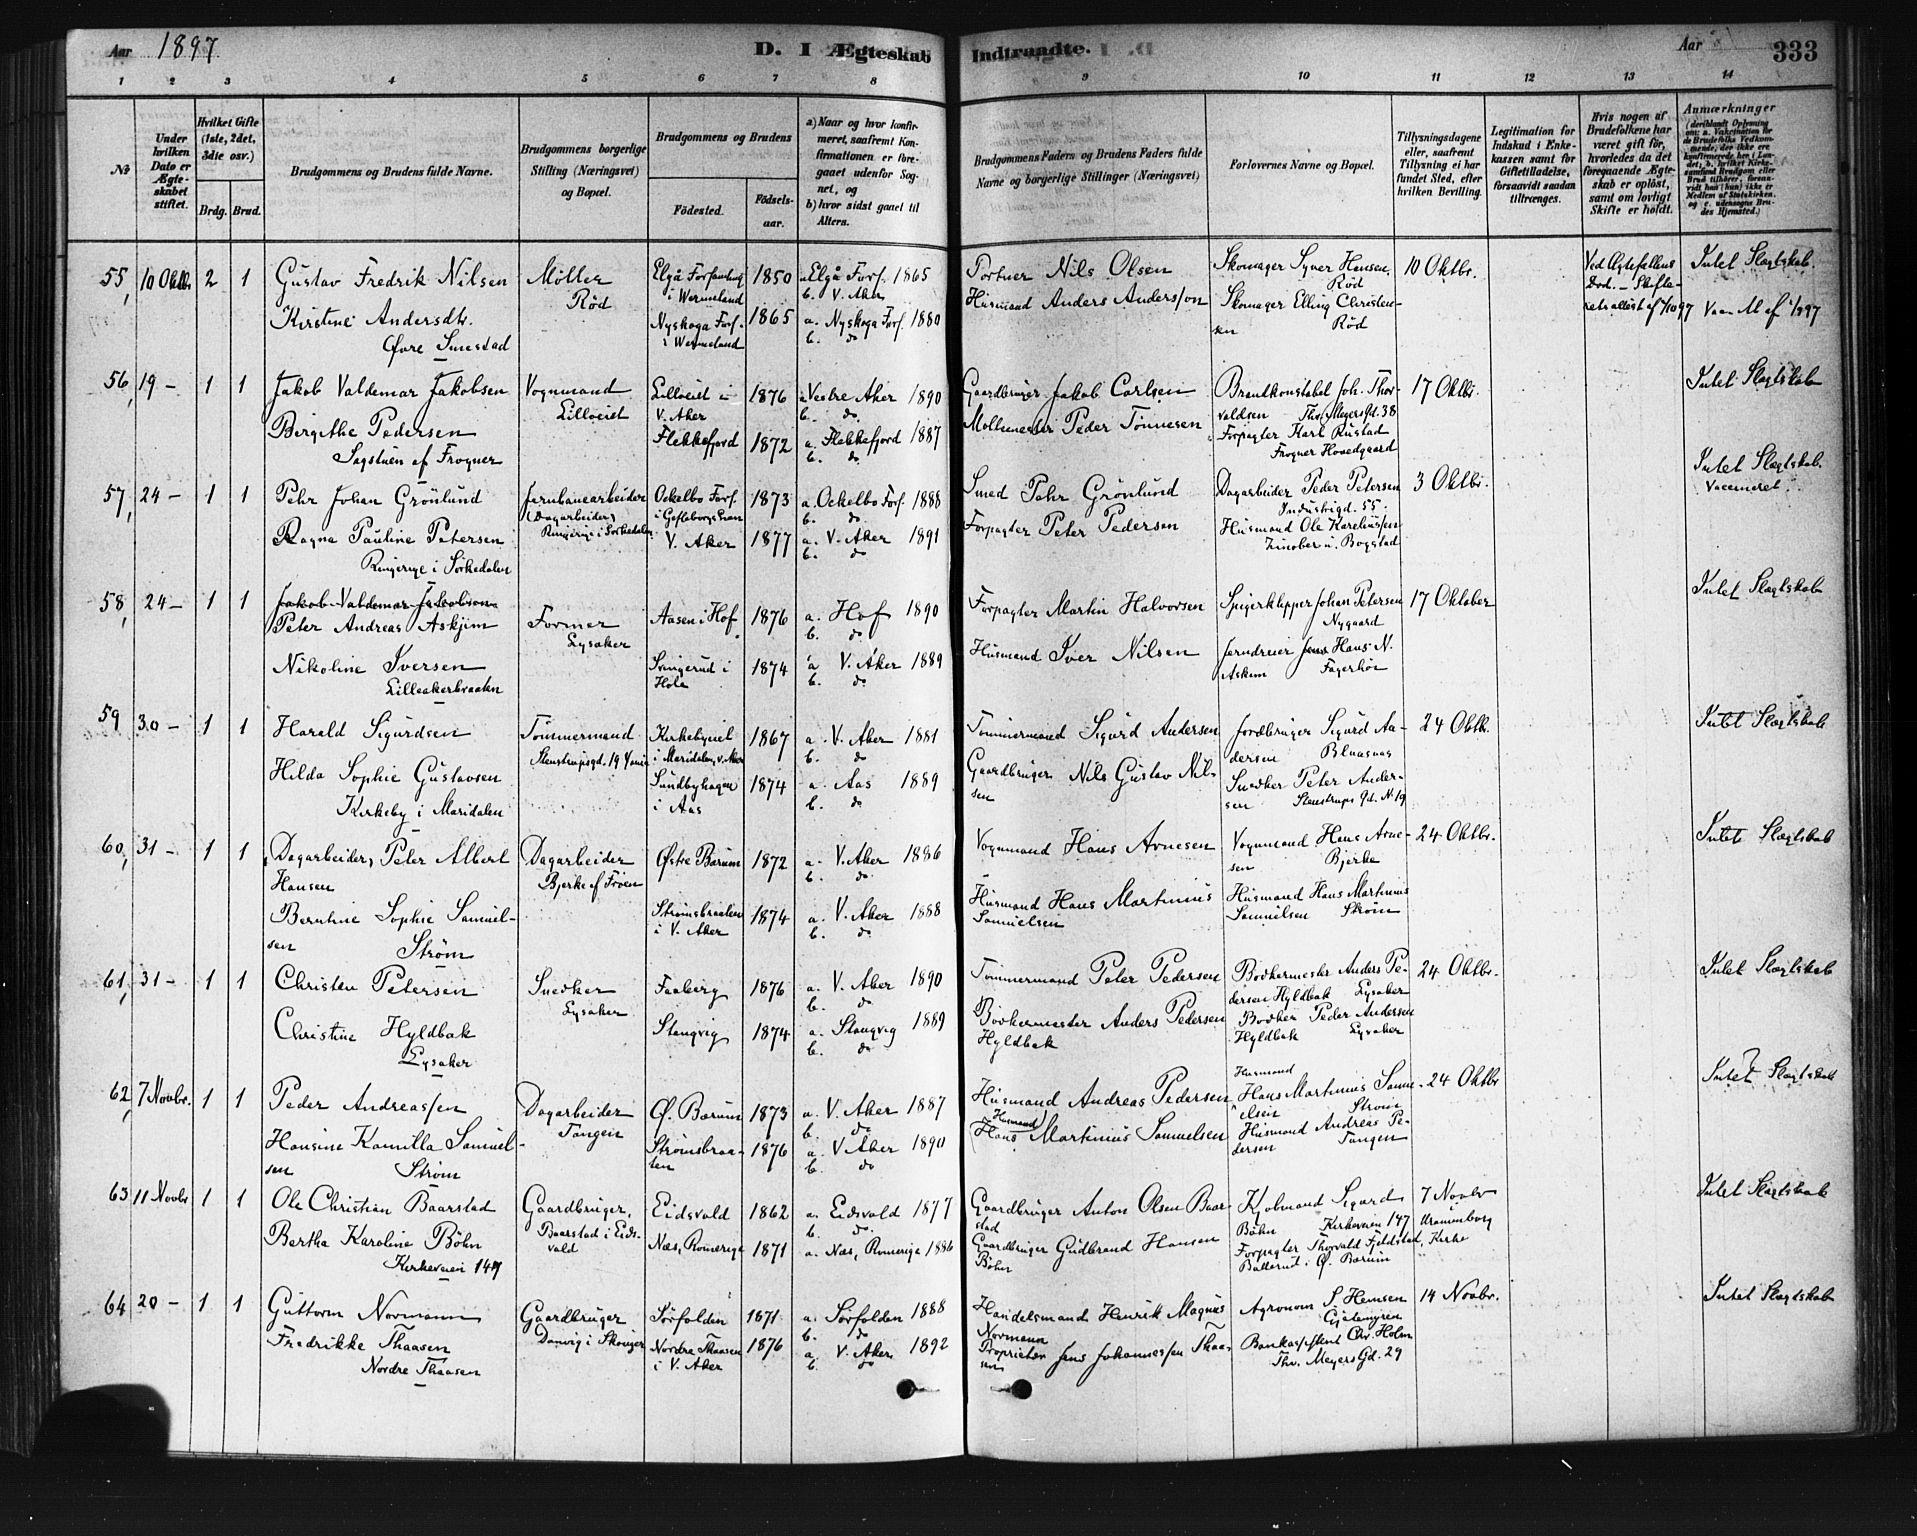 Aar 1897 D. I Ægteskab Indtraadte. Aar 333
1 2 3 4 5 6 7 8 9 10 11 12 13 14
№
Under hvilken Dato er Ægteskabet stiftet.
Hvilket Gifte (1ste, 2det, 3die osv.)
Brdg. Brud.
Brudgommens og Brudens fulde Navne.
Brudgommens borgerlige Stilling (Næringsvei) og Bopæl.
Brudgommens og Brudens
Fødested. Fødselsaar.
a) Naar og hvor konfirmeret, saafremt Konfirmationen er foregaaet udenfor Sognet, og
b) hvor sidst gaaet til Alters.
Brudgommens Faders og Brudens Faders fulde Navne og borgerlige Stillinger (Næringsvei)
Forlovernes Navne og Bopæl.
Tillysningsdagene eller, saafremt Tillysning ei har fundet Sted, efter hvilken Bevilling.
Legitimation for Indskud i Enkekassen samt for Giftetilladelse, forsaavidt saadan tiltrænges.
Hvis nogen af Brudefolkene har været gift før, hvorledes da det foregaaende Ægteskab er opløst, samt om lovligt Skifte er holdt.
Anmærkninger
55, 10 Oktb. 2 1 Gustav Fredrik Nilsen Møller Rød Elgå Forsamling i Wermeland 1850 a. Elgå Forf. 1865 b. V. Aker Portner Nils Olsen Skomager Syver Hansen, Rød 10 Oktbr. Ved Ægtefellens Død. Intet Slægtskab.
Kirstine Andersdtr. Øvre Smestad Nyskoga Forf. i Wermeland 1865 a. Nyskoga Forf. 1880 b. do Husmand Anders Andersson Skomager Elling Christensen Rød
56, 19 - 1 1 Jakob Valdemar Jakobsen Vognmand Lilloeiet Lilloeiet i V. Aker 1876 a Vestre Aker 1890 b. do Gaardbruger Jakob Carlsen Brandkonstabel Joh. Thorvaldsen Thv. Meyers Gd. 38 17 Oktbr. Intet Slægtskab
Birgithe Pedersen Sagstuen af Frogner Flekkefjord 1872 a. Flekkefjord 1887 b. do Møllemester Peder Tønnesen Forpagter Karl Rustad Frogner Hovedgaard
57, 24 - 1 1 Pehr Johan Grönlund Jernbanearbeider (Dagarbeider) Ringerige i Sørkedalen Ockelbo Forf. i Gefleborgs Læn 1873 a. Ockelbo Forf. 1888 b. do Smed Pehr Grönlund Dagarbeider Peder Petersen Industrigd. 55. 3 Oktbr. Intet Slægtskab. Vaccineret.
Ragna Pauline Petersen Ringerige i Sørkedalen V. Aker 1877 a. V. Aker 1891 b. do Forpagter Peter Pedersen Husmand Ole Kareliussen Zinober u. Bogstad
58, 24 - 1 1 Jakob Valdemar Jakobsen Peter Andreas Askjim Former Lysaker Aasen i Hof 1876 a. Hof 1890 b. do Forpagter Martin Halvorsen Spigerklipper Johan Petersen Nygaard 17 Oktober Intet Slægtskab
Nikoline Iversen Lilleakerbraaten Svingerud i Hole 1874 a V. Aker 1889 b. do Husmand Iver Nilsen Jerndreier Jens Hans N. Askim Fagerhøi
59 30 - 1 1 Harald Sigurdsen Tømmermand Stenstrupsgd. 19 Kirkebyeiet i Maridalen, V. Aker 1867 a. V. Aker 1881 b. do Tømmermand Sigurd Andersen Jordbruger Sigurd Andersen Blaasaas 24 Oktb. Intet Slægtskab
Hilda Sophie Gustavsen Kirkeby i Maridalen Sundbyhagen i Aas 1874 a. Aas 1889 b. do Gaardbruger Nils Gustav Nilsen Snedker Peter Andersen Stenstrups Gd. № 19
60, 31 - 1 1 (Dagarbeider) Peter Albert Hansen Dagarbeider Bjerke af Frøen Østre Bærum 1872 a. V. Aker 1886 b. do Vognmand Hans Arnesen Vognmand Hans Arnesen Bjerke 24 Oktbr. Intet Slægtskab
Berntine Sophie Samuelsen Strøm Strømsbraaten i V. Aker 1874 a. V. Aker 1888 b. do Husmand Hans Martinius Samuelsen Husmand Hans Martinius Samuelsen Strøm
61, 31 - 1 1 Christen Petersen Snedker Lysaker Faaberg 1876 a. V. Aker 1890 b. do Tømmermand Peter Pedersen Bødkermester Anders Pedersen Hyldbak Lysaker 24 Oktbr. Intet Slægtskab
Christine Hyldbak Lysaker Stangvig 1874 a. Stangvig 1889 b. do Bødkermester Anders Pedersen Hyldbak Bødker Peder Andersen Hyldbak Lysaker
62, 7 Novbr. 1 1 Peder Andreassen Dagarbeider Tangen Ø. Bærum 1873 a. V. Aker 1887 b. do Husmand Andreas Pedersen Husmand Hans Martinius Samuelsen Strøm 24 Oktbr Intet Slægtskab
Hansine Kamilla Samuelsen Strøm Strømsbraaten 1876 a. V. Aker 1890 b. do (Husmand) Hans Martinius Samuelsen Husmand Andreas Pedersen Tangen
63 11 Novbr 1 1 Ole Christian Baarstad Gaardbruger, Baarstad i Eidsvold Eidsvold 1862 a. Eidsvold 1877 b. do. Gaardbruger Anton Olsen Baarstad Kjøbmand Sigurd Bøhn Kirkeveien 147 7 Novbr Uranienborg Kirke Intet Slægtskab
Bertha Karoline Böhn Kirkeveien 147 Næs, Romerige 1871 a. Næs, Romerige 1886 Gaardbruger Gudbrand Hansen Bøhn Forpagter Thorvald Fjeldstad, Ballerud i Ø. Bærum
64 20 - 1 1 Guttorm Normann Gaardbruger Danvig i Skouger Sørfolden 1871 a. Sørfolden 1888 b. do Handelsmand Henrik Magnus Normann Agronom S Hemsen Gjetemyren 14 Novbr. Intet Slægtskab
Fredrikke Thaasen Nordre Thaasen Nordre Thaasen i V. Aker 1876 a. V. Aker 1892 b. do Proprietær Jens Johannessen Thaasen Bankassistent Chr. Holm Thv. Meyers Gd. 29